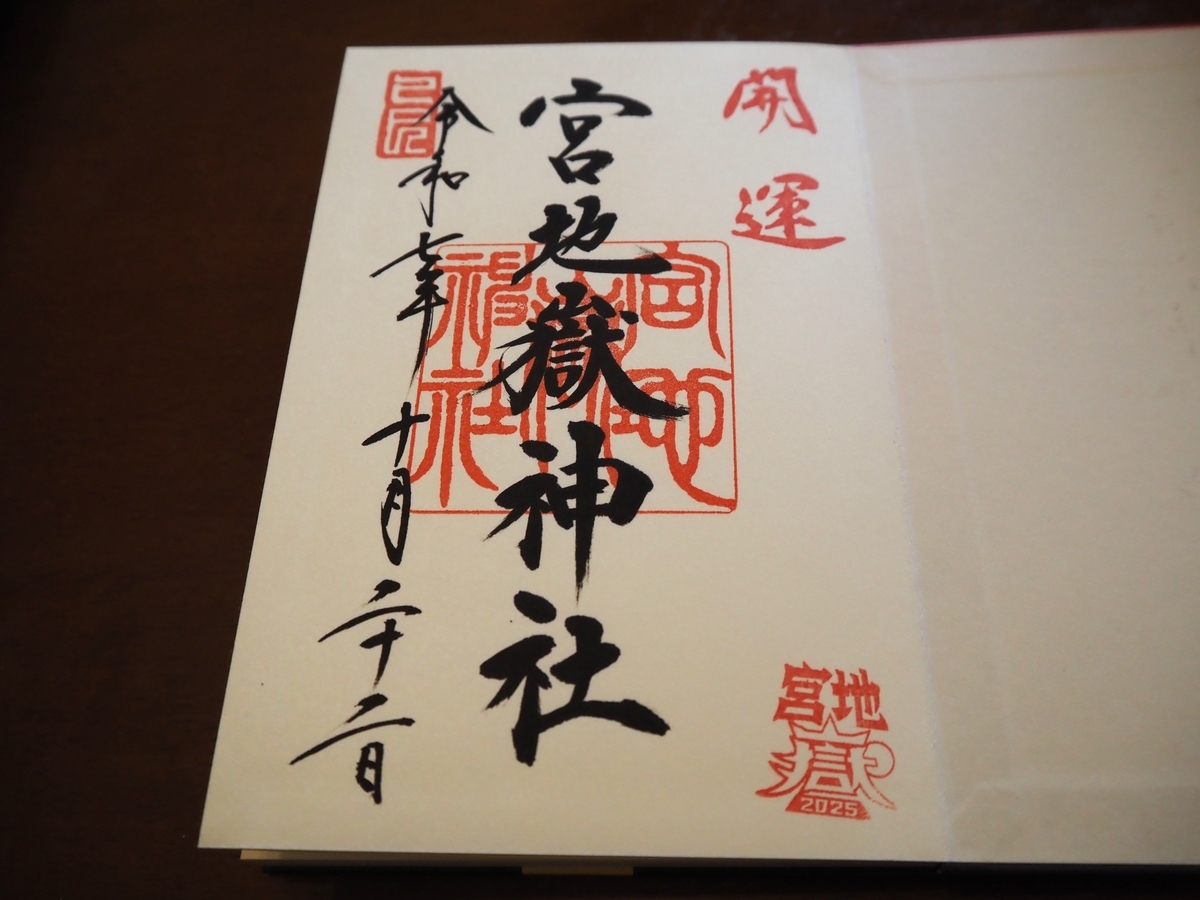 開運
宮地
嶽
2025
宮地嶽神社
宮地
嶽
神社
令和七年十月二十二日
己巳